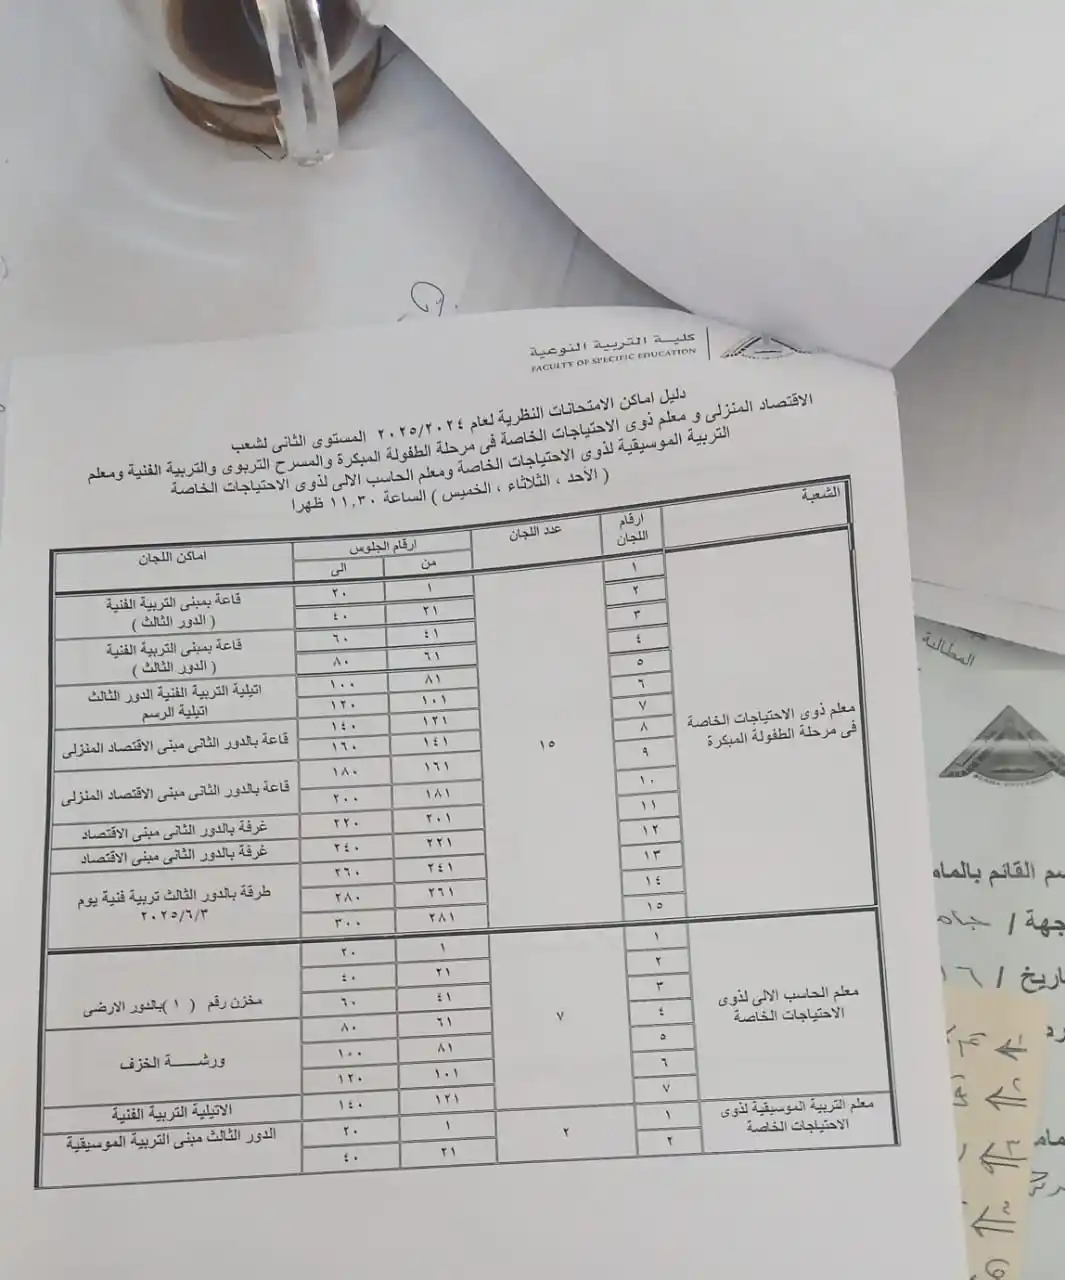 كليــة التربية النوعية
FACULTY OF SPECIFIC EDUCATION
دليل اماكن الامتحانات النظرية لعام ٢٠٢٥/٢٠٢٤ المستوى الثانى لشعب
الاقتصاد المنزلى و معلم ذوى الاحتياجات الخاصة فى مرحلة الطفولة المبكرة والمسرح التربوى والتربية الفنية ومعلم
التربية الموسيقية لذوى الاحتياجات الخاصة ومعلم الحاسب الالى لذوى الاحتياجات الخاصة
( الأحد ، الثلاثاء ، الخميس ) الساعة ١١,٣٠ ظهرا
الشعبة ارقام اللجان عدد اللجان ارقام الجلوس اماكن اللجان
من الى
معلم ذوى الاحتياجات الخاصة
فى مرحلة الطفولة المبكرة
١٥
١ ١ ٢٠ قاعة بمبنى التربية الفنية
٢ ٢١ ٤٠ ( الدور الثالث )
٣ ٤١ ٦٠ قاعة بمبنى التربية الفنية
٤ ٦١ ٨٠ ( الدور الثالث )
٥ ٨١ ١٠٠ اتيلية التربية الفنية الدور الثالث
٦ ١٠١ ١٢٠ اتيلية الرسم
٧ ١٢١ ١٤٠ قاعة بالدور الثانى مبنى الاقتصاد المنزلى
٨ ١٤١ ١٦٠
٩ ١٦١ ١٨٠ قاعة بالدور الثانى مبنى الاقتصاد المنزلى
١٠ ١٨١ ٢٠٠
١١ ٢٠١ ٢٢٠ غرفة بالدور الثانى مبنى الاقتصاد
١٢ ٢٢١ ٢٤٠ غرفة بالدور الثانى مبنى الاقتصاد
١٣ ٢٤١ ٢٦٠ طرقة بالدور الثالث تربية فنية يوم
١٤ ٢٦١ ٢٨٠ ٢٠٢٥/٦/٣
١٥ ٢٨١ ٣٠٠
معلم الحاسب الالى لذوى
الاحتياجات الخاصة
٧
١ ١ ٢٠
٢ ٢١ ٤٠
٣ ٤١ ٦٠ مخزن رقم ( ١ )بالدور الارضى
٤ ٦١ ٨٠
٥ ٨١ ١٠٠ ورشــــة الخزف
٦ ١٠١ ١٢٠
٧ ١٢١ ١٤٠ الاتيلية التربية الفنية
معلم التربية الموسيقية لذوى
الاحتياجات الخاصة
٢
١ ١ ٢٠ الدور الثالث مبنى التربية الموسيقية
٢ ٢١ ٤٠
المطالبة
القائم بالمام
جهة /
اريخ / ١٦